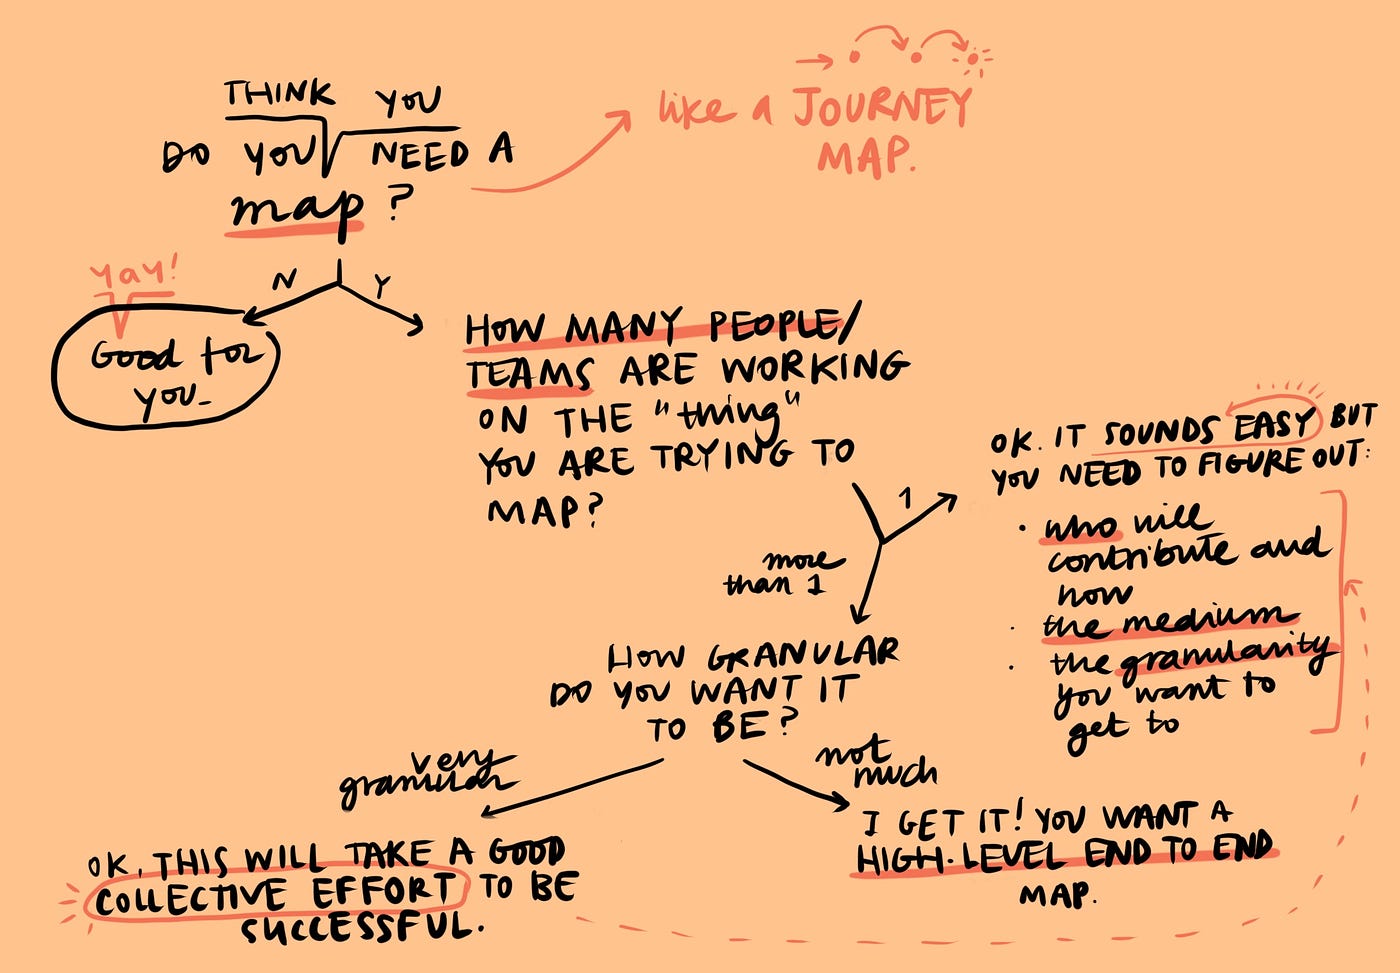 THINK YOU
DO YOU NEED A
map ?
like a JOURNEY
MAP.
N
Y
yay!
Good for
you-
HOW MANY PEOPLE/
TEAMS ARE WORKING
ON THE "thing"
YOU ARE TRYING TO
MAP?
1
more
than 1
OK. IT SOUNDS EASY BUT
YOU NEED TO FIGURE OUT:
• who will
contribute and
how
· the medium
· the granularity
you want to
get to
HOW GRANULAR
DO YOU WANT IT
TO BE?
very
granular
not
much
OK, THIS WILL TAKE A GOOD
COLLECTIVE EFFORT TO BE
SUCCESSFUL.
I GET IT! YOU WANT A
HIGH-LEVEL END TO END
MAP.